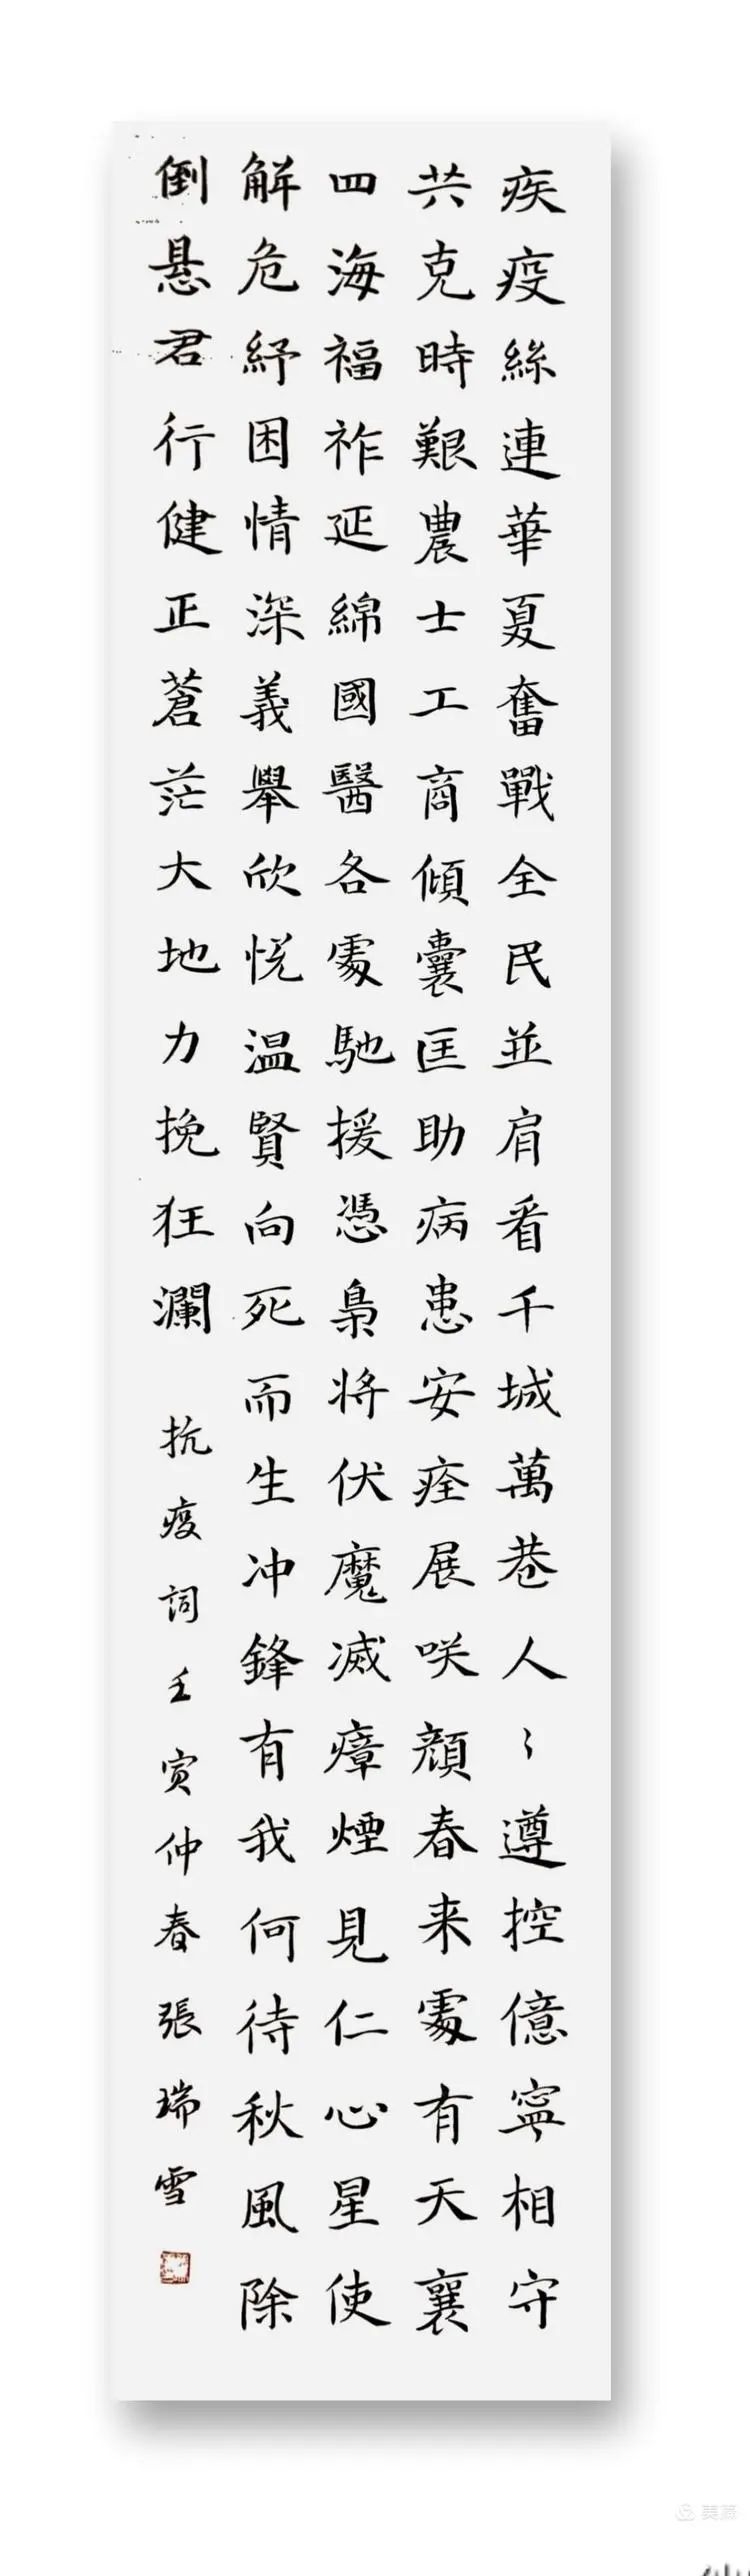 疾疫絲連華夏奮戰全民並肩看千城萬巷人〻遵控億寧相守
共克時艱農士工商傾囊匡助病患安痊展咲顔春来處有天襄
四海福祚延綿國醫各處馳援憑梟将伏魔滅瘴煙見仁心星使
解危紓困情深義舉欣悦温賢向死而生冲鋒有我何待秋風除
倒悬君行健正蒼茫大地力挽狂瀾 抗疫詞壬寅仲春張瑞雪
美篇